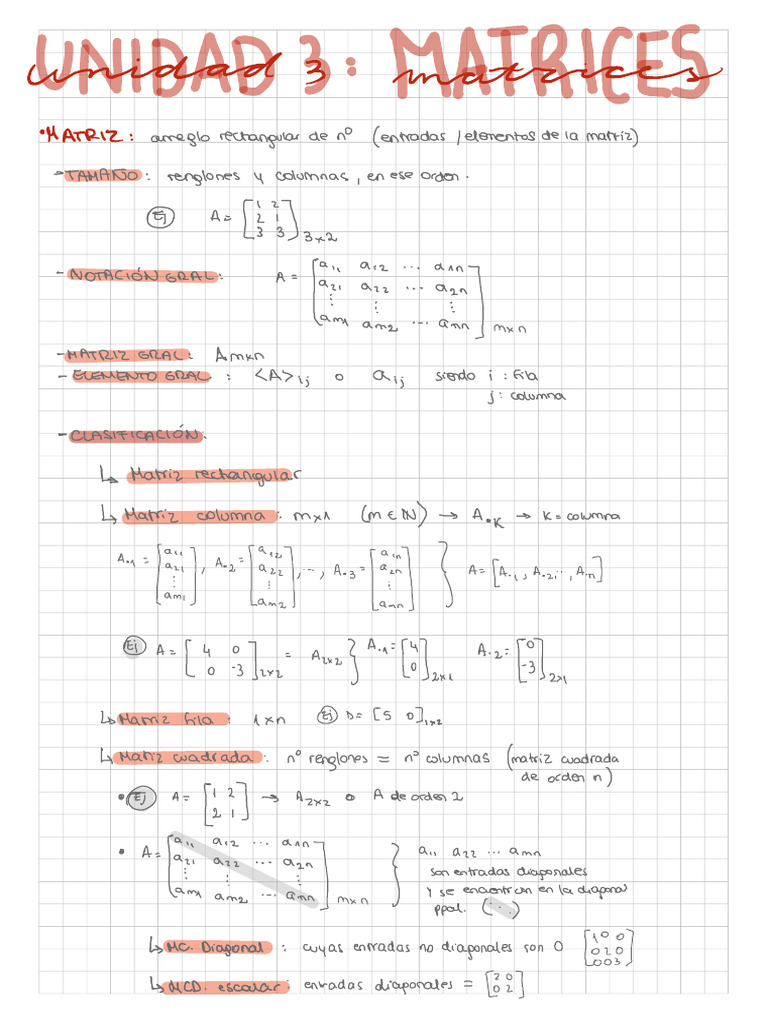 UNIDAD 3: MATRICES
unidad 3 matrices
•MATRIZ: arreglo rectangular de nº (entradas / elementos de la matriz)
- TAMAÑO: renglones y columnas, en ese orden.
Ej A = [1 2
2 1
3 3] 3x2
- NOTACIÓN GRAL: A = [a11 a12 ... a1n
a21 a22 ... a2n
⋮ ⋮ ⋮
am1 am2 ... amn] mxn
- MATRIZ GRAL: Amxn
- ELEMENTO GRAL: <A>ij o aij siendo i: fila
j: columna
- CLASIFICACIÓN:
↳ Matriz rectangular
↳ Matriz columna: mx1 (m ∈ ℕ) → A•K → K = columna
A•1 = [a11 a21 ⋮ am1], A•2 = [a12 a22 ⋮ am2], ..., A•3 = [a1n a2n ⋮ amn] } A = [A•1, A•2, ..., A•n]
Ej A = [4 0
0 -3] 2x2 = A2x2 } A•1 = [4 0] 2x1 A•2 = [0 -3] 2x1
↳ Matriz fila: 1xn Ej D = [5 0] 1x2
↳ Matiz cuadrada: nº renglones = nº columnas (matriz cuadrada
de orden n)
• Ej A = [1 2
2 1] → A2x2 o A de orden 2
• A = [a11 a12 ... a1n
a21 a22 ... a2n
⋮ ⋮ ⋮
am1 am2 ... amn] mxn
} a11 a22 ... amn
son entradas diagonales
y se encuentran en la diagonal
ppal. (⋱)
↳ MC. Diagonal: cuyas entradas no diagonales son 0 [1 0 0
0 2 0
0 0 3]
↳ MCD. escalar: entradas diagonales = [2 0
0 2]